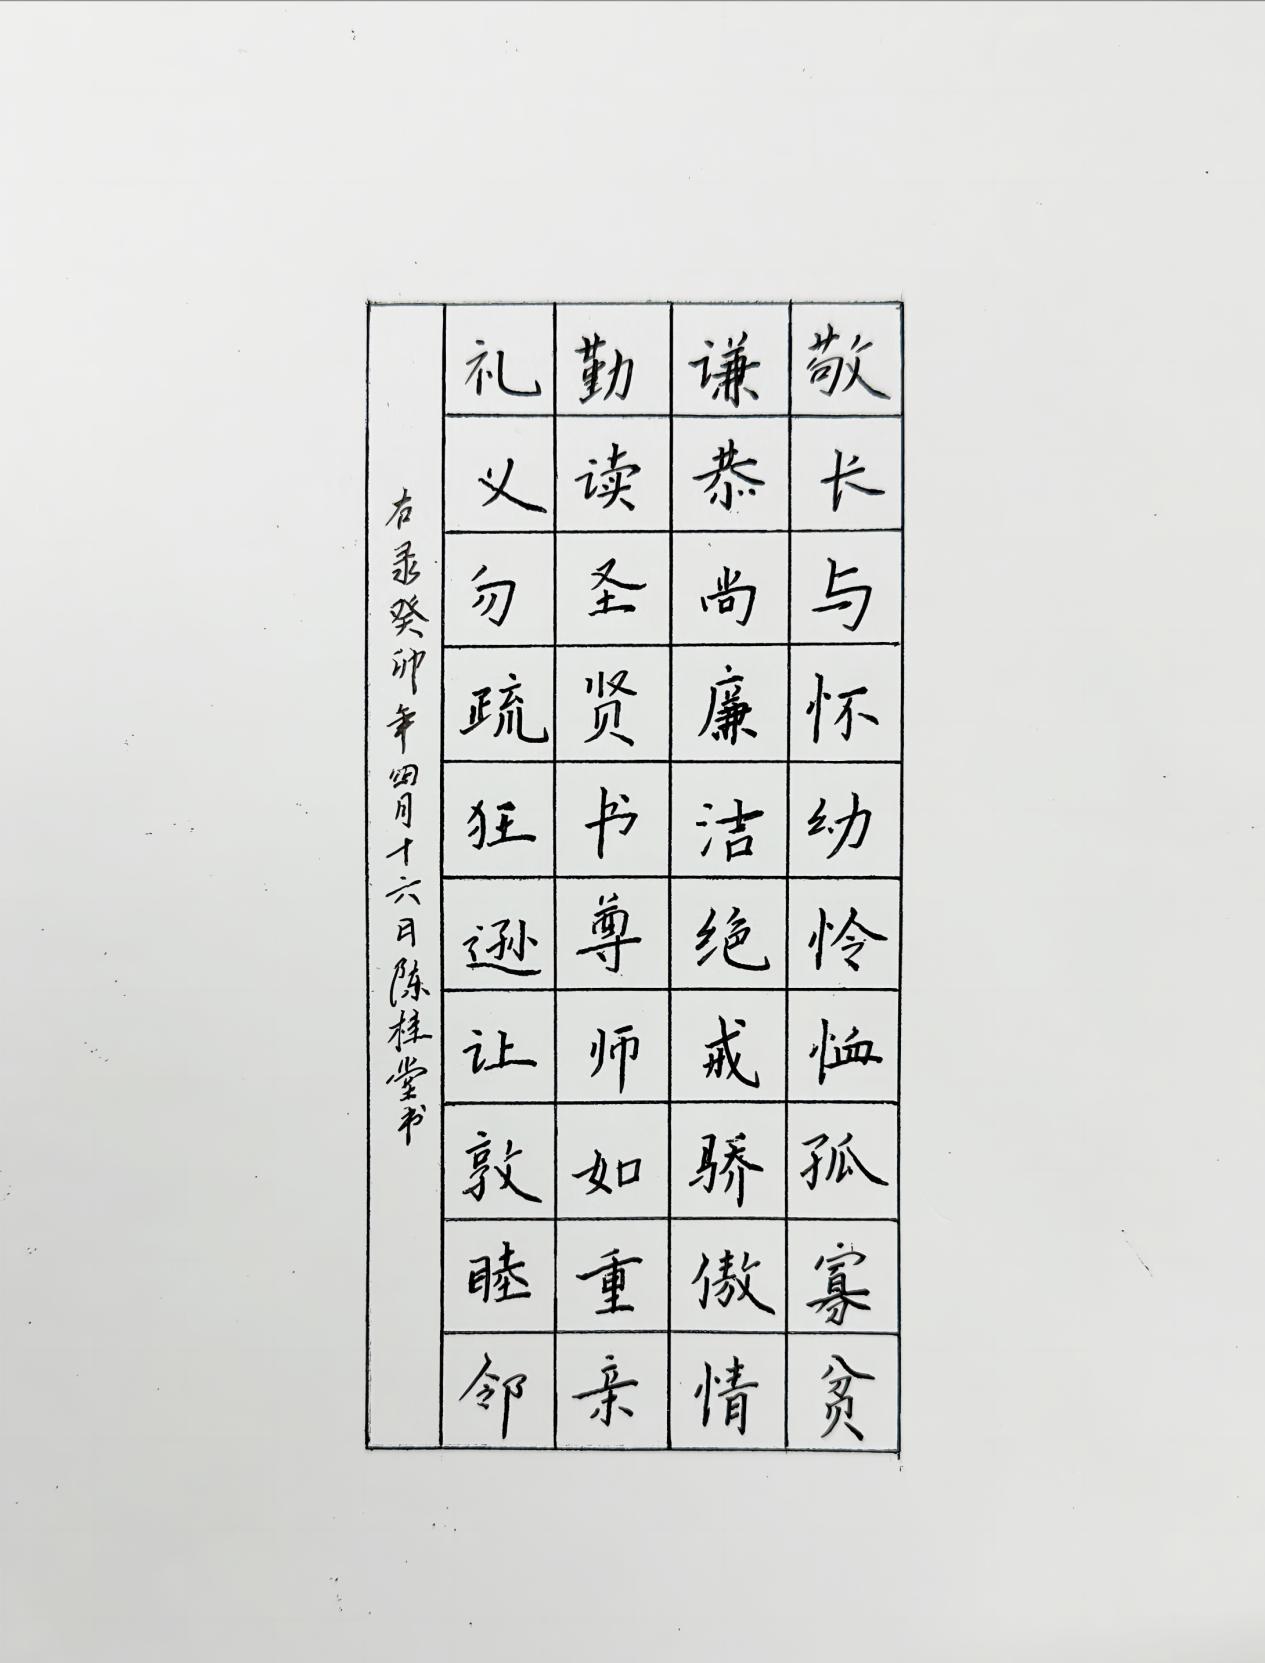 敬长与怀幼怜恤孤寡贫
谦恭尚廉洁绝戒骄傲情
勤读圣贤书尊师如重亲
礼义勿疏狂逊让敦睦邻
右录癸卯年四月十六日陈桂堂书